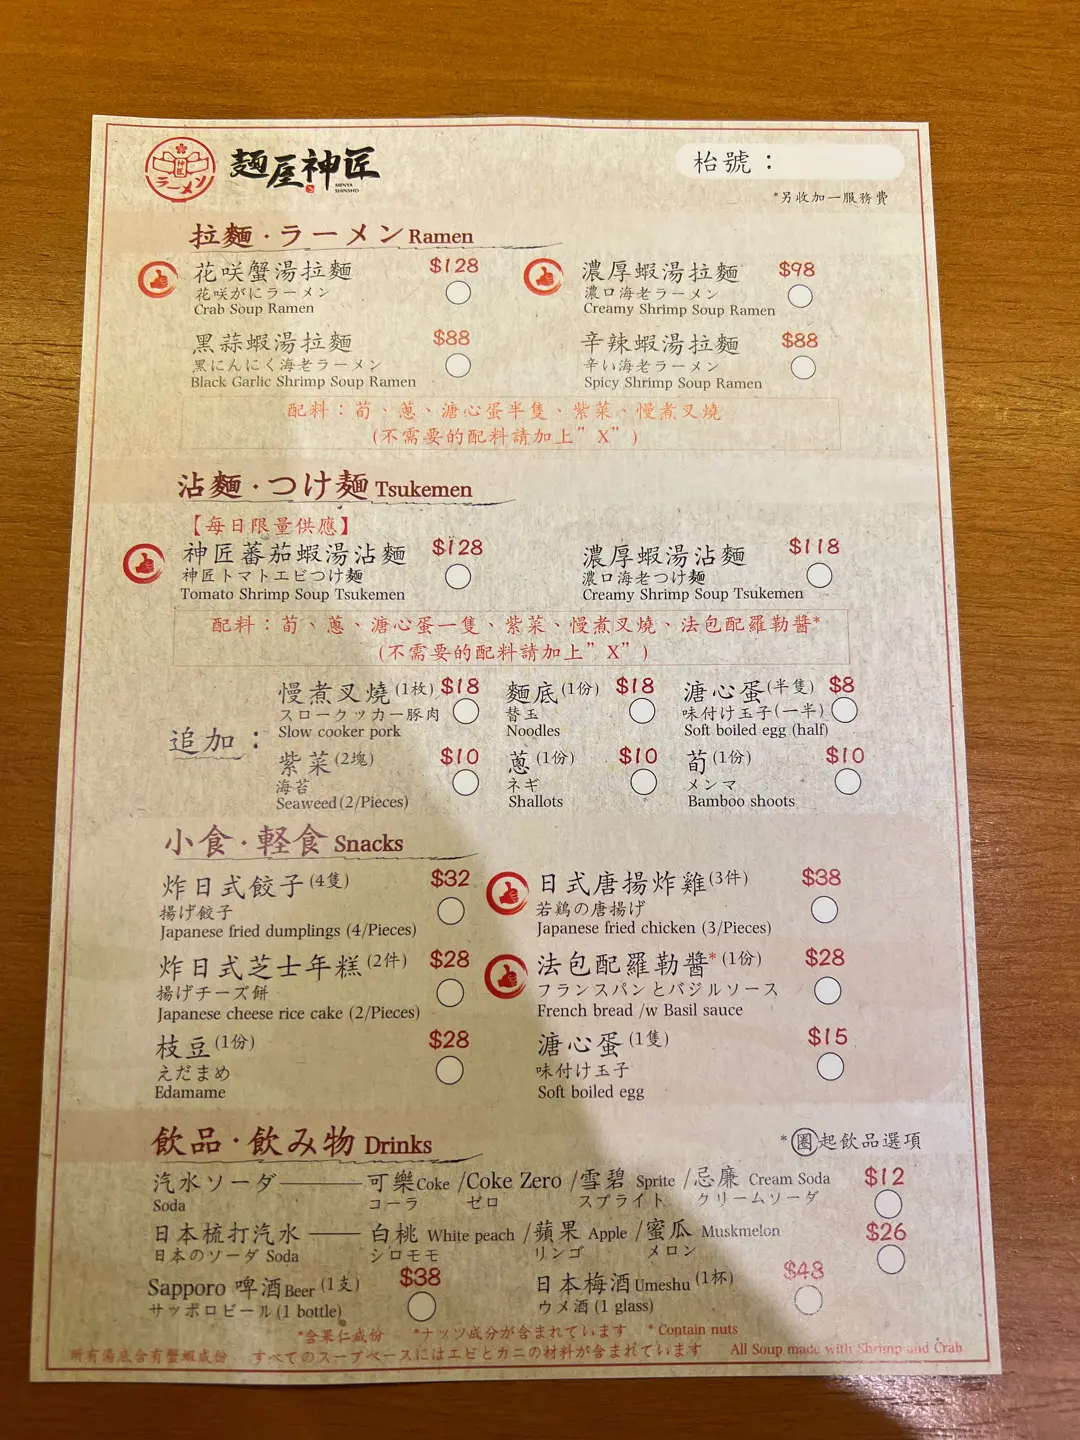 神匠
ラーメン
麵屋神匠
MENYA
SHINSHO
枱號：
*另收加一服務費
拉麵·ラーメン Ramen
花咲蟹湯拉麵 $128
花咲がにラーメン
Crab Soup Ramen
濃厚蝦湯拉麵 $98
濃口海老ラーメン
Creamy Shrimp Soup Ramen
黑蒜蝦湯拉麵 $88
黒にんにく海老ラーメン
Black Garlic Shrimp Soup Ramen
辛辣蝦湯拉麵 $88
辛い海老ラーメン
Spicy Shrimp Soup Ramen
配料：荀、蔥、溏心蛋半隻、紫菜、慢煮叉燒
(不需要的配料請加上"X")
沾麵·つけ麺 Tsukemen
【每日限量供應】
神匠蕃茄蝦湯沾麵 $128
神匠トマトエビつけ麺
Tomato Shrimp Soup Tsukemen
濃厚蝦湯沾麵 $118
濃口海老つけ麺
Creamy Shrimp Soup Tsukemen
配料：荀、蔥、溏心蛋一隻、紫菜、慢煮叉燒、法包配羅勒醬*
(不需要的配料請加上"X")
追加：
慢煮叉燒(1枚) $18
スロークッカー豚肉
Slow cooker pork
麵底(1份) $18
替玉
Noodles
溏心蛋(半隻) $8
味付け玉子(一半)
Soft boiled egg (half)
紫菜(2塊) $10
海苔
Seaweed(2/Pieces)
蔥(1份) $10
ネギ
Shallots
荀(1份) $10
メンマ
Bamboo shoots
小食·軽食 Snacks
炸日式餃子(4隻) $32
揚げ餃子
Japanese fried dumplings (4/Pieces)
日式唐揚炸雞(3件) $38
若鶏の唐揚げ
Japanese fried chicken (3/Pieces)
炸日式芝士年糕(2件) $28
揚げチーズ餅
Japanese cheese rice cake (2/Pieces)
法包配羅勒醬*(1份) $28
フランスパンとバジルソース
French bread /w Basil sauce
枝豆(1份) $28
えだまめ
Edamame
溏心蛋(1隻) $15
味付け玉子
Soft boiled egg
飲品·飲み物 Drinks
*圈起飲品選項
汽水ソーダ——可樂Coke /Coke Zero /雪碧 Sprite /忌廉 Cream Soda $12
Soda コーラ ゼロ スプライト クリームソーダ
日本梳打汽水——白桃 White peach /蘋果 Apple /蜜瓜 Muskmelon $26
日本のソーダ Soda シロモモ リンゴ メロン
Sapporo 啤酒Beer(1支) $38
サッポロビール(1 bottle)
日本梅酒Umeshu(1杯) $48
ウメ酒 (1 glass)
*含果仁成份 *ナッツ成分が含まれています * Contain nuts
所有湯底含有蟹蝦成份 すべてのスープベースにはエビとカニの材料が含まれています All Soup made with Shrimp and Crab